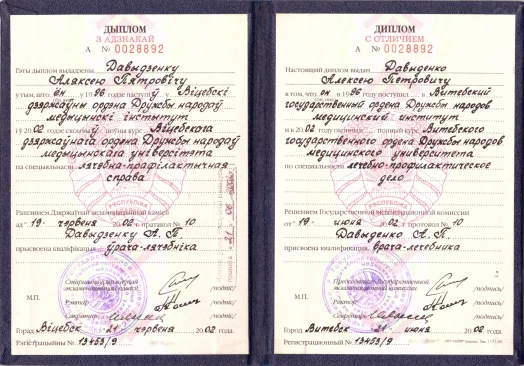 ДЫПЛОМ
З АДЗНАКАЙ
А № 0028892
Гэты дыплом выдадзены Давыдзенку
Аляксею Пятровічу
у тым, што ён у 1996 годзе паступіў у Віцебскі
дзяржаўны ордэна Дружбы народаў
медыцынскі інстытут
і ў 2002 годзе скончыў поўны курс Віцебскага
дзяржаўнага ордэна Дружбы народаў
медыцынскага універсітэта
па спецыяльнасці лячэбна-прафілактычная
справа
Рашэннем Дзяржаўнай экзаменацыйнай камісіі
ад "19" чэрвеня 2002 г. пратакол № 10
Давыдзенку А. П.
прысвоена кваліфікацыя ўрача-лячэбніка
Старшыня дзяржаўнай
экзаменацыйнай камісіі /подпіс/
М.П. Рэктар /подпіс/
Сакратар /подпіс/
Горад Віцебск 21 чэрвеня 2002 года
Рэгістрацыйны № 13453/9
ДИПЛОМ
С ОТЛИЧИЕМ
А № 0028892
Настоящий диплом выдан Давыденко
Алексею Петровичу
в том, что он в 1996 году поступил в Витебский
государственный ордена Дружбы народов
медицинский институт
и в 2002 году окончил полный курс Витебского
государственного ордена Дружбы народов
медицинского университета
по специальности лечебно-профилактическое
дело
Решением Государственной экзаменационной комиссии
от "19" июня 2002 г. протокол № 10
Давыденко А. П.
присвоена квалификация врача-лечебника
Председатель государственной
экзаменационной комиссии /подпись/
М.П. Ректор /подпись/
Секретарь /подпись/
Город Витебск 21 июня 2002 года
Регистрационный № 13453/9